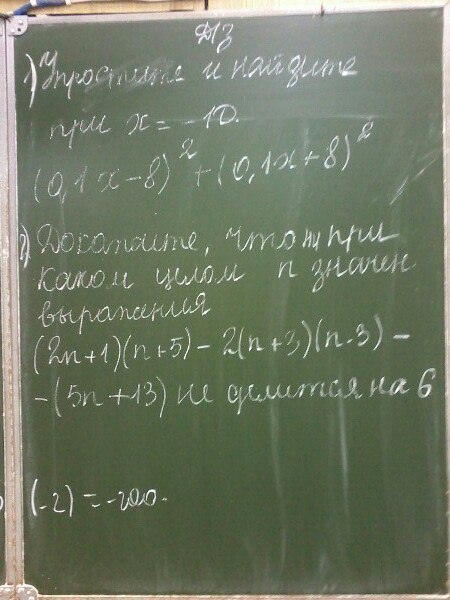 ДЗ
1) Упростите и найдите
при x = -10.
(0,1x-8)² + (0,1x+8)²
2) Докажите, что ни при
каком целом n значен
выражения
(2n+1)(n+5) - 2(n+3)(n-3) -
- (5n+13) не делится на 6
(-2) = -200.